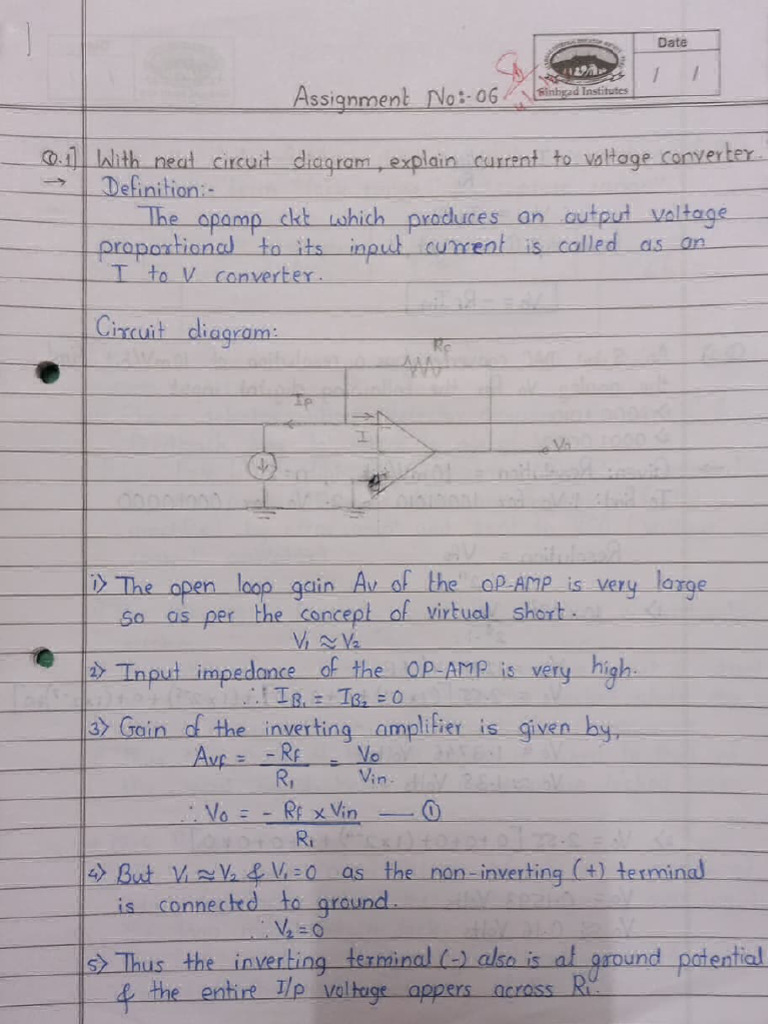 Assignment No:- 06
Sinhgad Institutes
Date
/ /
Q.1] With neat circuit diagram, explain current to voltage converter.
→ Definition:-
The opamp ckt which produces an output voltage
proportional to its input current is called as an
I to V converter.
Circuit diagram:
RF
IP
I
Vo
1) The open loop gain Av of the OP-AMP is very large
so as per the concept of virtual short.
V1 ≈ V2
2) Input impedance of the OP-AMP is very high.
∴ IB1 = IB2 = 0
3) Gain of the inverting amplifier is given by,
AVF = -RF / R1 = Vo / Vin.
∴ Vo = - RF x Vin / R1 — ①
4) But V1 ≈ V2 & V1=0 as the non-inverting (+) terminal
is connected to ground.
∴ V2=0
5) Thus the inverting terminal (-) also is at ground potential
& the entire I/p voltage appers across R1.